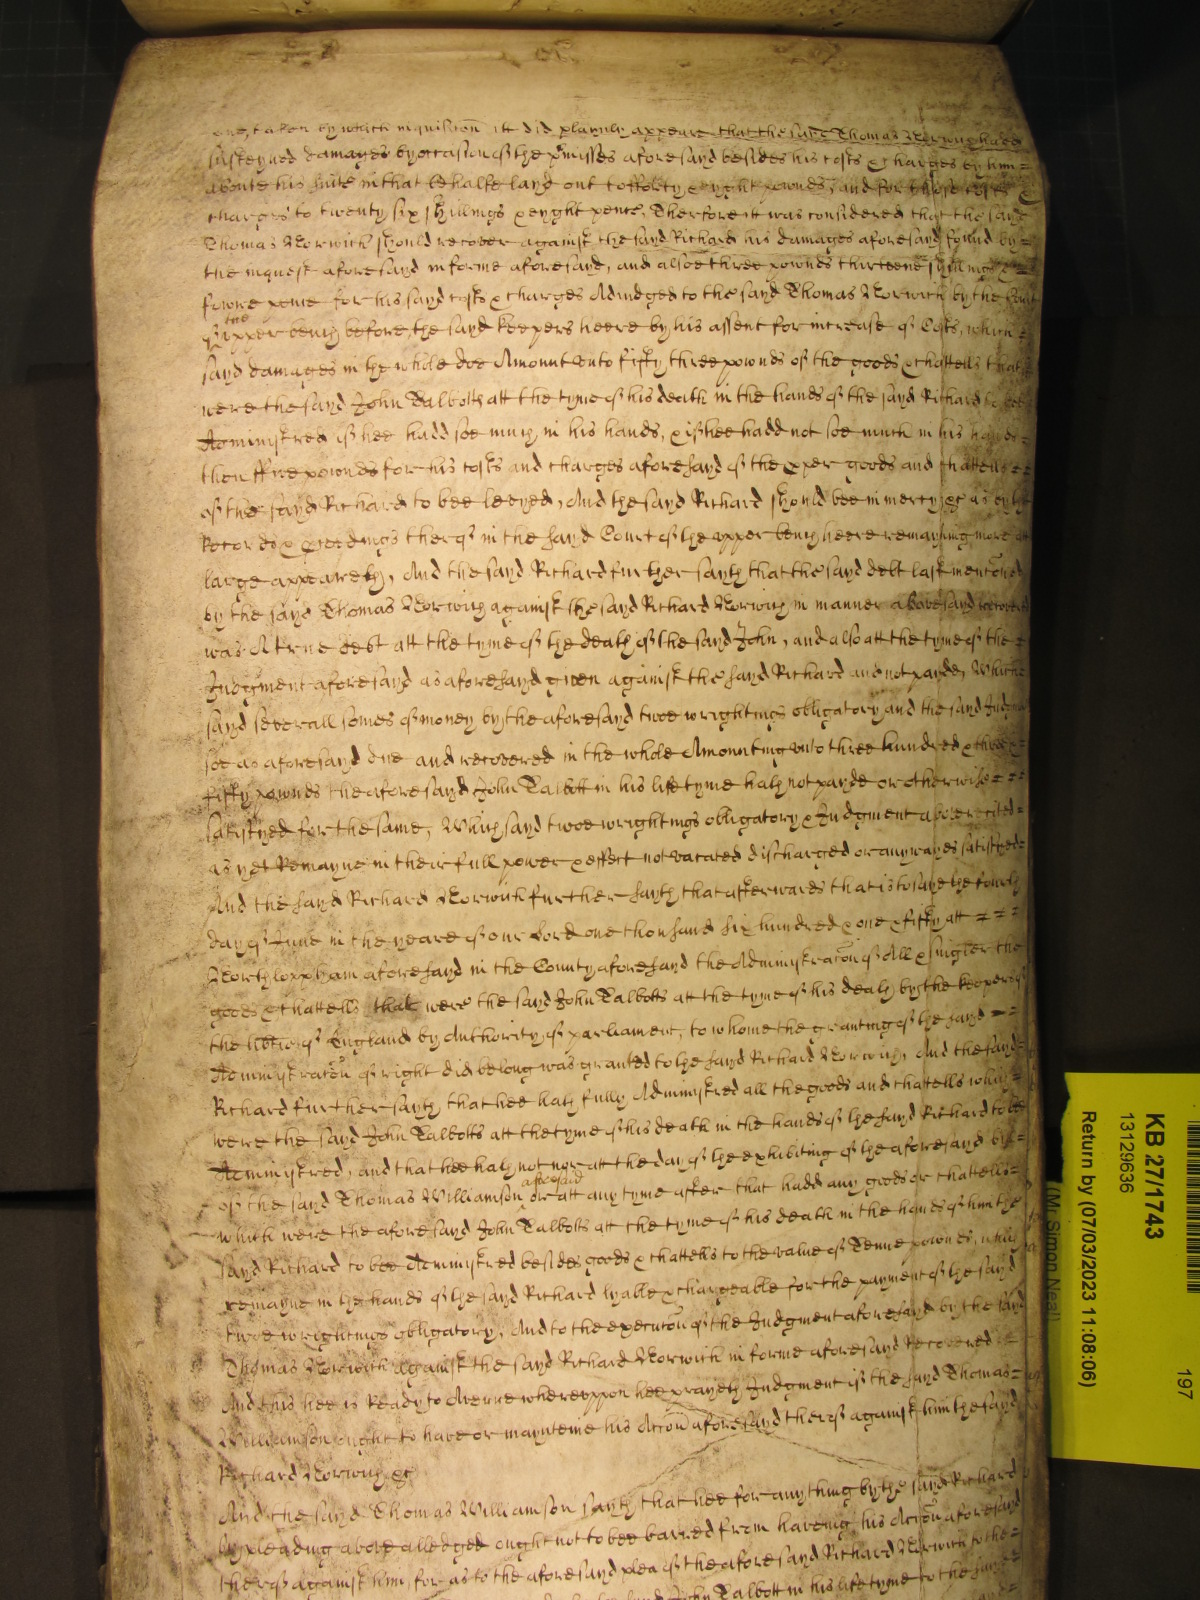 one, taken by which inquisicon it did playnly appeare that the said Thomas Norwich hadd
susteyned damages by occasion of the p'misses aforesayd besides his costs & charges by him =
aboute his suite in that behalfe layd out to fforty & eyght pownds, and for those costs &
charges to twenty six shillings & eyght pence, Therfore it was considered that the sayd
Thomas Norwich should recover against the sayd Richard his damages aforesayd found by =
the inquest aforesayd in forme aforesayd, and alsoe three pownds thirteene shillings &
fowre pence for his sayd costs & charges Adiudged to the sayd Thomas Norwich by the Court
of the upper bench before the sayd keepers heere by his assent for increase of Costs, which =
sayd damages in the whole doe Amount unto fifty three pownds of the goods & chattells that
were the sayd John Talbotts att the tyme of his death in the hands of the sayd Richard to bee
Administred if hee hadd soe much in his hands, & if hee hadd not soe much in his hands =
then ffive pownds for his costs and charges aforesayd of the p'per goods and chattells = =
of the sayd Richard to bee levyed, And the sayd Richard should bee in mercy &c as by the
Records & p'ceedings therof in the sayd Court of the upper bench heere remayning more att
large appeareth, And the sayd Richard further sayth that the sayd debt last mentioned
by the sayd Thomas Norwich against the sayd Richard Norwich in manner abovesayd recovered
was A true debt att the tyme of the death of the sayd John, and also att the tyme of the =
Judgment aforesayd as aforesayd given against the sayd Richard and not payde, Which
sayd severall somes of money by the aforesayd twoe wrightings obligatory and the sayd Judgmt
soe as aforesayd due and recovered in the whole Amounting unto three hundred & three &
fifty pownds the aforesayd John Talbott in his life tyme hath not payde or otherwise = = =
satisfyed for the same, Which sayd twoe wrightings obligatory & Judgment above recited =
as yet Remayne in their full power & effect not vacated discharged or anywayes satisfyed =
And the sayd Richard Norwich further sayth that afterwards that is to saye the fourth
day of June in the yeare of our Lord one thousand six hundred & one & fifty att = = =
North loppham aforesayd in the County aforesayd the Administracon of All & singler the
goods & chattells that were the sayd John Talbotts att the tyme of his death by the keepers of
the libtie of England by Authority of parliament, to whome the granting of the sayd = =
Administracon of right did belong was granted to the sayd Richard Norwich, And the sayd =
Richard further sayth that hee hath fully Administred all the goods and chattells which =
were the sayd John Talbotts att the tyme of his death in the hands of the sayd Richard to bee
Administred, and that hee hath not nor att the day of the exhibiting of the aforesayd bill =
of the sayd Thomas Williamson aforesaid or att any tyme after that hadd any goods or chattells =
which were the aforesayd John Talbotts att the tyme of his death in the hands of him the
sayd Richard to bee Administred besides goods & chattells to the value of Tenne pownds, which
remayne in the hands of the sayd Richard lyable & chargeable for the payment of the sayd
twoe wrightings obligatory, And to the execucon of the Judgment aforesayd by the sayd
Thomas Norwich against the sayd Richard Norwich in forme aforesayd Recovered =
And this hee is Ready to Averre whereuppon hee prayeth Judgment if the sayd Thomas =
Williamson ought to have or maynteine his Accon aforesayd therof against him the sayd
Richard Norwich &c
And the sayd Thomas Williamson sayth that hee for any thing by the sayd Richard
by pleading above alledged ought not to bee barred from haveing his Accon aforesayd
therof against him, for as to the aforesayd plea of the aforesayd Richard Norwich to the =
John Talbott in his life tyme to the same
KB 27/1743
13129636
Return by (07/03/2023 11:08:06)
197
(Mr Simon Neal)